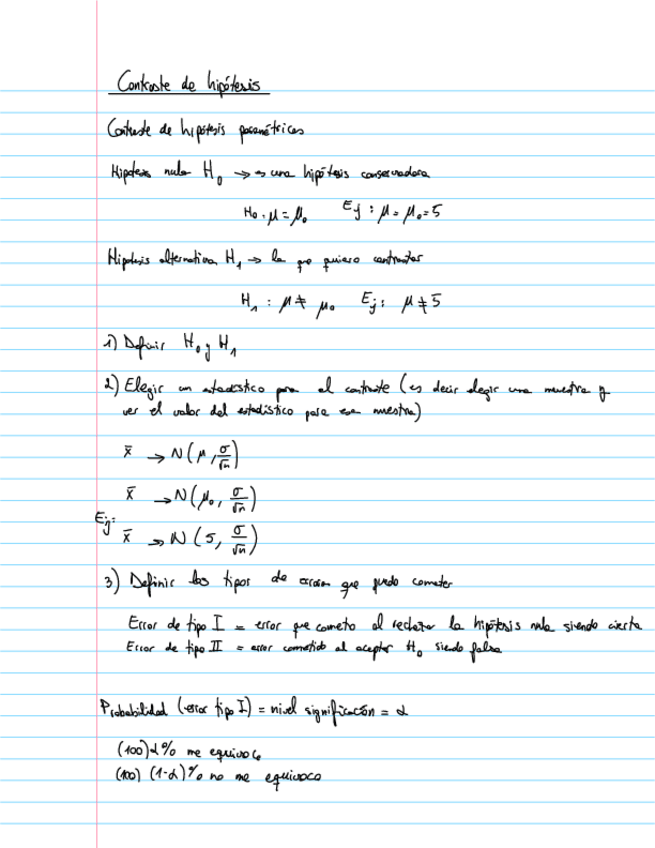 Contraste de hipótesis
Contraste de hipótesis paramétricas
Hipótesis nula H₀ → es una hipótesis conservadora
H₀: μ = μ₀ Ej: μ = μ₀ = 5
Hipótesis alternativa H₁ → la que quiero contrastar
H₁: μ ≠ μ₀ Ej: μ ≠ 5
1) Definir H₀ y H₁
2) Elegir un estadístico para el contraste (es decir elegir una muestra y
ver el valor del estadístico para esa muestra)
x̄ → N(μ, σ/√n)
x̄ → N(μ₀, σ/√n)
Ej: x̄ → N(5, σ/√n)
3) Definir los tipos de errores que puedo cometer
Error de tipo I = error que cometo al rechazar la hipótesis nula siendo cierta
Error de tipo II = error cometido al aceptar H₀ siendo falsa
Probabilidad (error tipo I) = nivel significación = α
(100)α% me equivoco
(100)(1-α)% no me equivoco